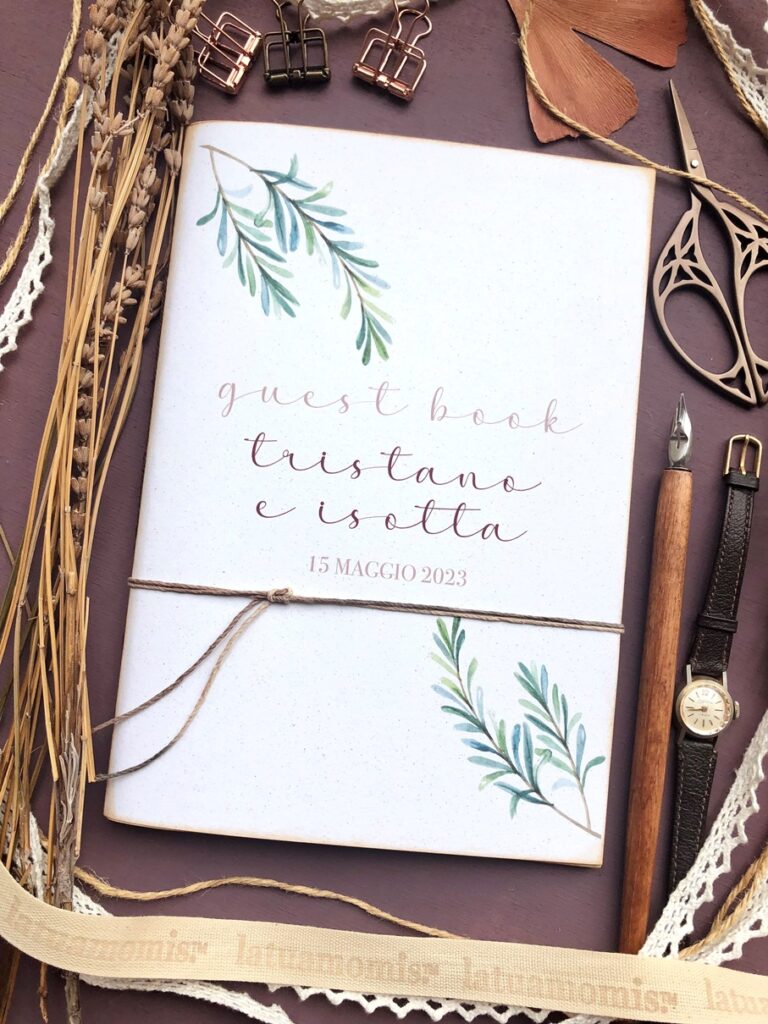 guest book
tristano
e isotta
15 MAGGIO 2023
latuamomis™ latuamomis™ latuamomis™